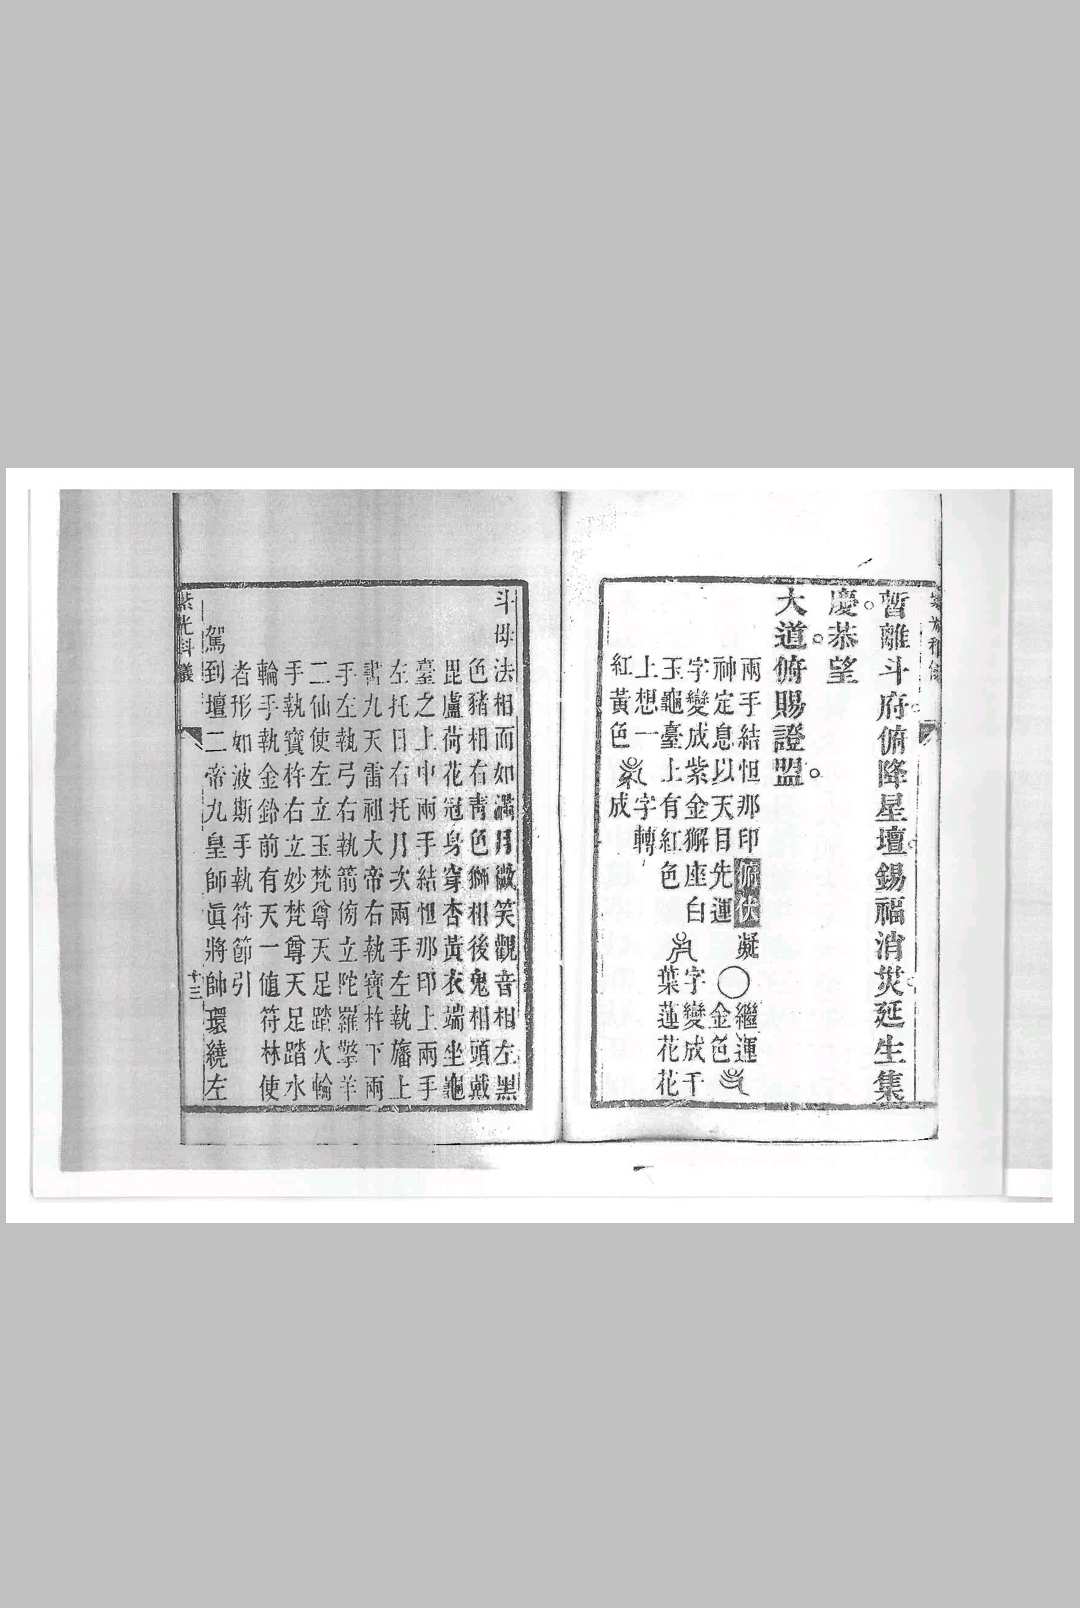 暫離斗府俯降星壇錫福消災延生集
慶。恭望。
大道俯賜證盟。
兩手結怛那印俯伏凝〇繼運
神定息以天目先運金色
字變成紫金獬座白字變成千
玉龜臺上有紅色葉蓮花花
上想一字轉
紅黃色成
斗母法相而如滿月微笑觀音相左黑
色豬相右青色獅相後鬼相頭戴
毘盧荷花冠身穿杏黃衣端坐龜
臺之上中兩手結怛那印上兩手
左托日右托月次兩手左執旛上
書九天雷祖大帝右執寶杵下兩
手左執弓右執箭傍立陀羅擎羊
二仙使左立玉梵尊天足踏火輪
手執寶杵右立妙梵尊天足踏水
輪手執金鈴前有天一值符林使
者形如波斯手執符節引
駕到壇二帝九皇師眞將帥環繞左
紫光科儀
十三